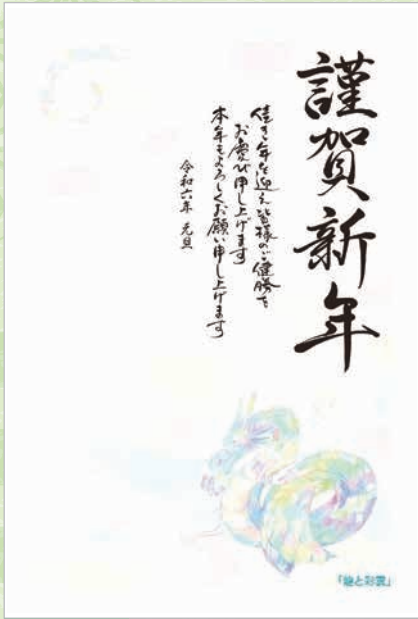 謹賀新年
佳き年を迎え皆様のご健勝を
お慶び申し上げます
本年もよろしくお願い申し上げます
令和六年 元旦